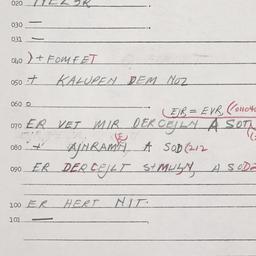 020
030 —
031 —
040 ) + FOMFET
050 + KALUPEN DEM NOZ
060 o
EJR = EVR
070 ER VET MIR DERCEJLN A SOT
(E)
080 + AJNRAMEN A SOD (212
090 ER DERCEJLT S+MUSN, A SOD2
100 ER HERT NIT.
101 —